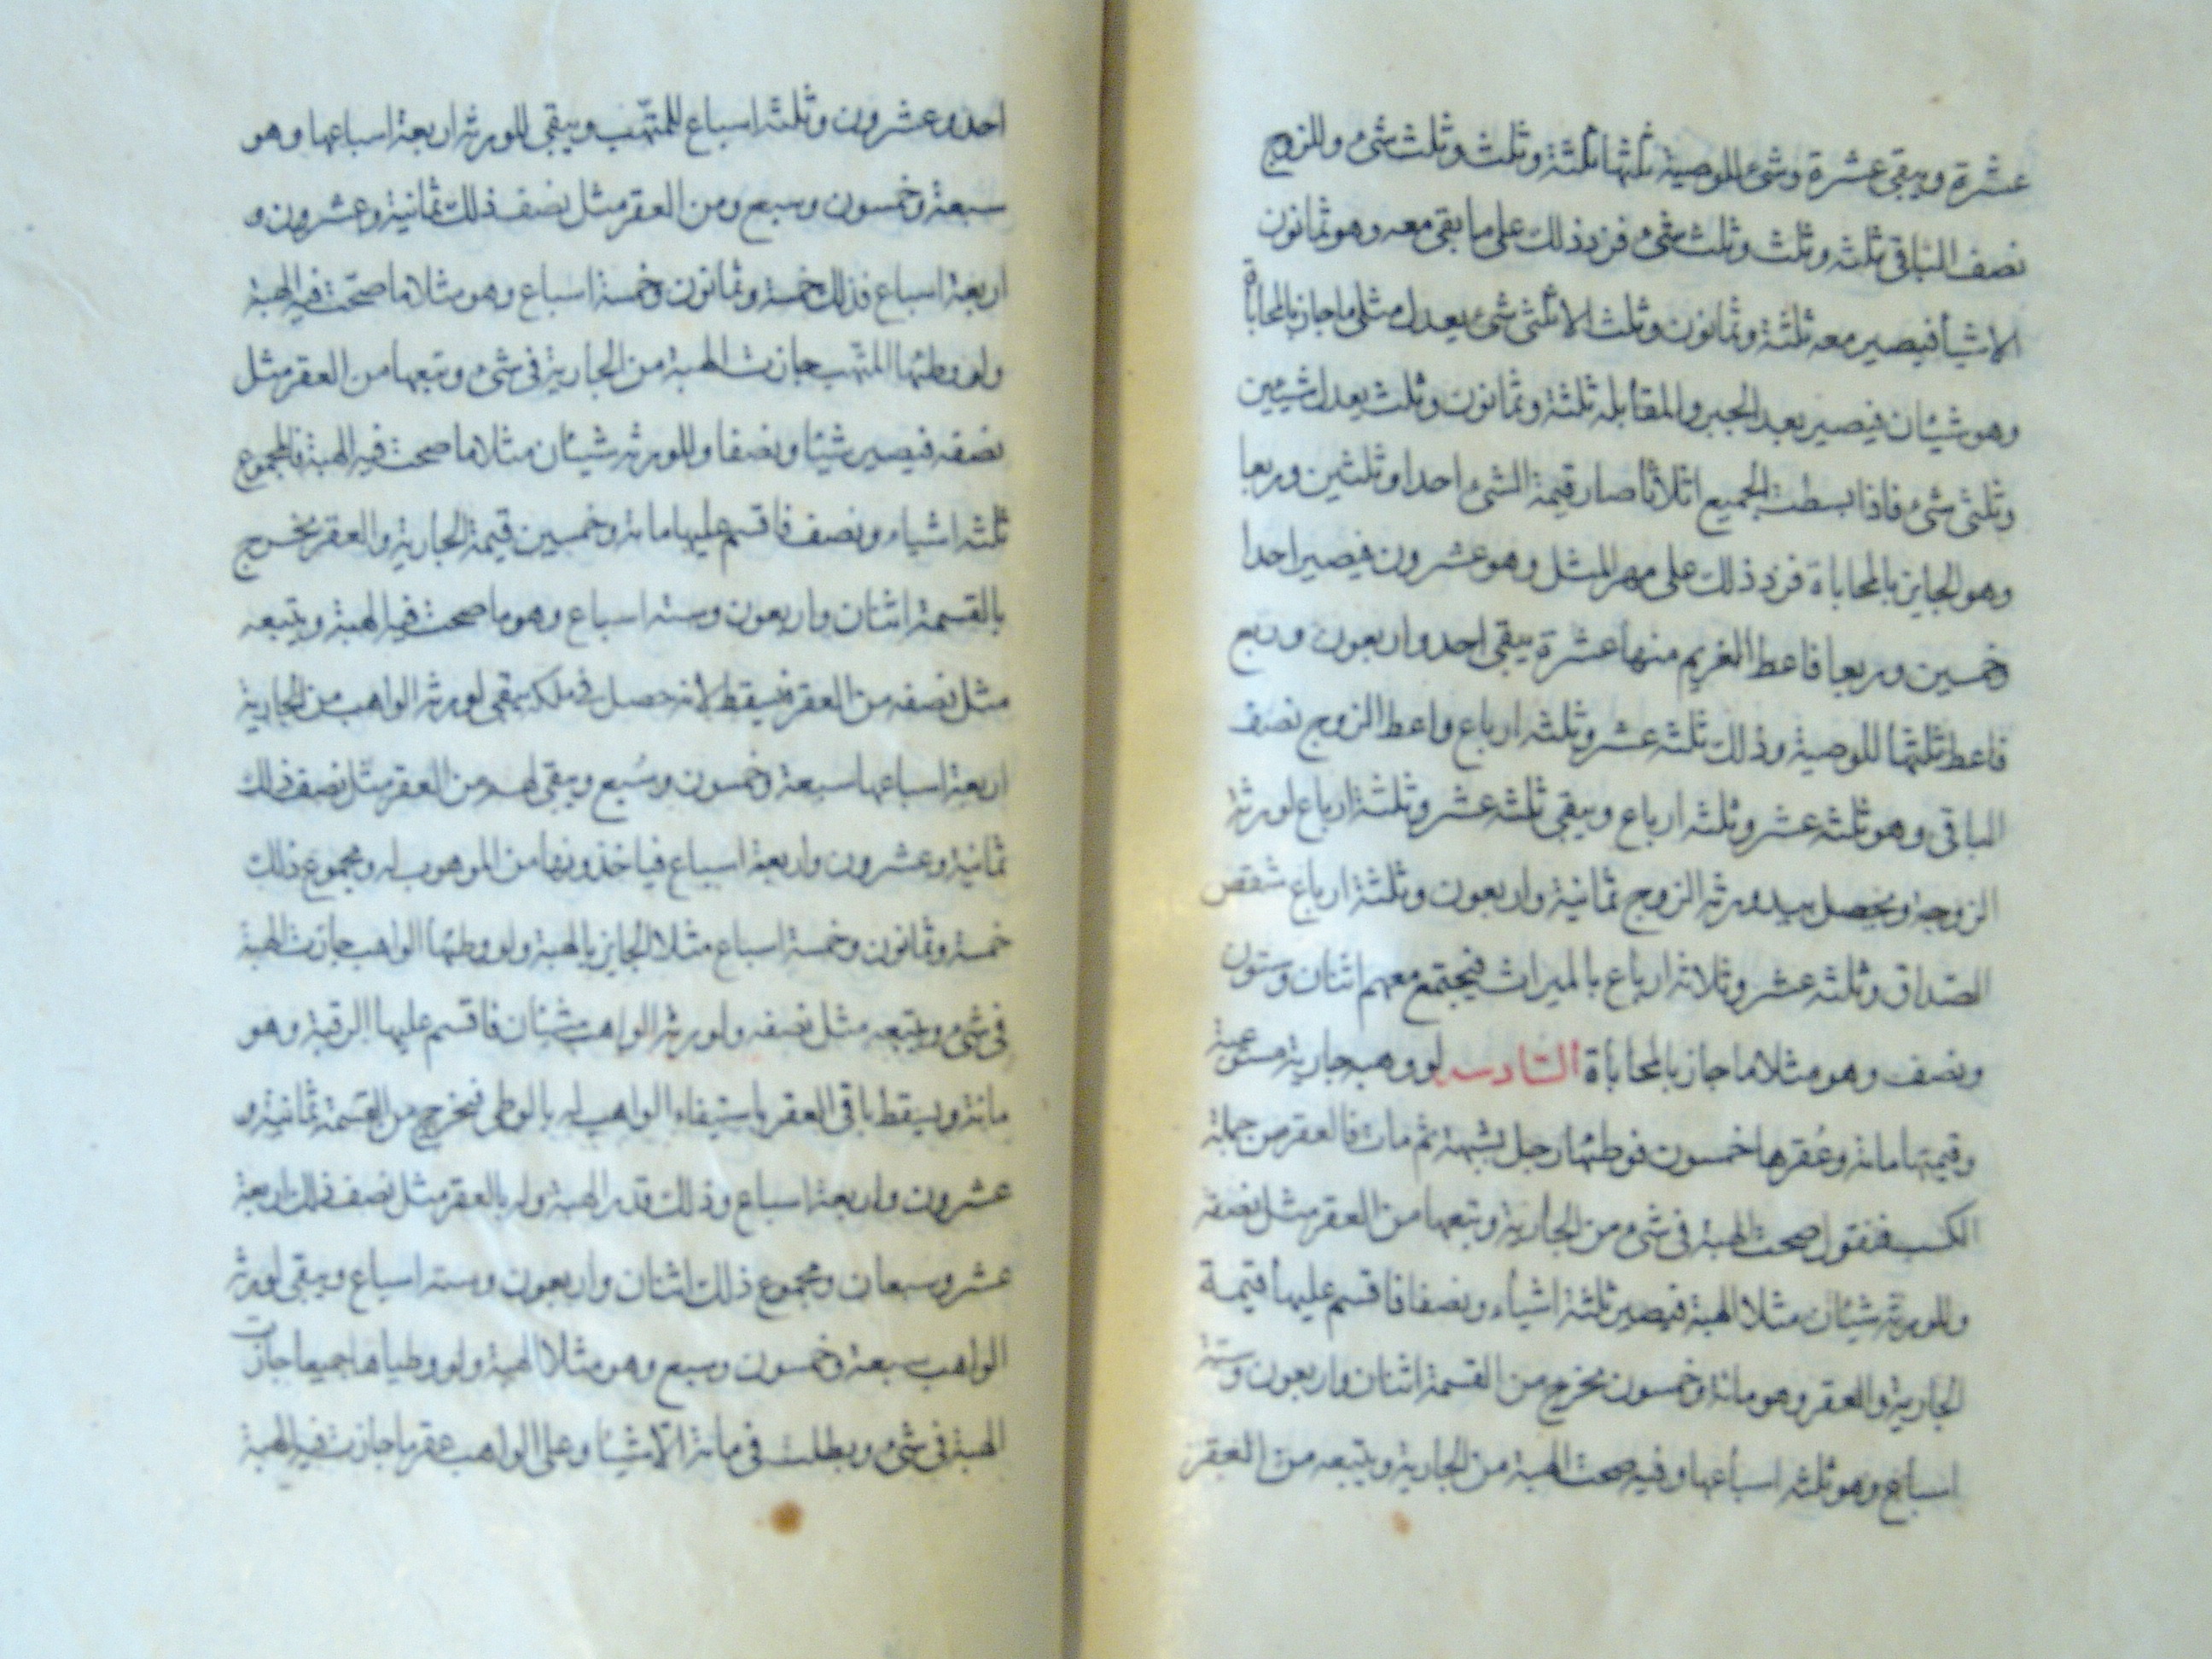 عشرة ويبقى عشرة وشئ للوصية ثلثها ثلثة وثلث وثلث شئ وللزوج
نصف الباقى ثلثه وثلث وثلث شئ فزد ذلك على ما بقى معه وهو ثمانون
الا شيأ فيصير معه ثلثة وثمانون وثلث الا ثلثى شئ يعدل مثلى ما جاز بالمحاباة
وهو شيئان فيصير بعد الجبر والمقابله ثلثة وثمانون وثلث يعدل شيئين
وثلثى شئ فاذا بسطت الجميع اثلاثا صار قيمة الشئ احدا وثلثين وربعا
وهو الجايز بالمحاباة فزد ذلك على مهر المثل وهو عشرون فيصير احدا
وخمسين وربعا فاعط الغريم منها عشرة يبقى احد واربعون وربع
فاعط ثلثها للوصية وذلك ثلثه عشر وثلثه ارباع واعط الزوج نصف
الباقى وهو ثلثه عشر وثلثه ارباع ويبقى ثلثه عشر وثلثة ارباع لورثة
الزوجة ويحصل بيد ورثة الزوج ثمانية واربعون وثلثة ارباع
الصداق وثلثه عشر وثلاثه ارباع بالميراث فيجتمع معهم اثنان وستون
ونصف وهو مثلا ما جاز بالمحاباة السادسه لو وهب جارية مستوعبة
وقيمتها مائة وعقرها خمسون فوطئها رجل بشبهة ثم مات فالعقر من جملة
الكسب فنقول صحت الهبة فى شئ من الجارية وتبعها من العقر مثل نصفه
وللورثة شيئان مثلا الهبة فيصير ثلثة اشياء ونصفا فاقسم عليها قيمة
الجارية والعقر وهو مائة وخمسون يخرج من القسمة اثنان واربعون وستة
اسباع وهو ثلثه اسباعها وفيه صحت الهبة من الجارية ويتبعه من العقر
احد وعشرون وثلثه اسباع للمتهب ويبقى للورثة اربعة اسباعها وهو
سبعة وخمسون وسبع ومن العقر مثل نصف ذلك ثمانية وعشرون و
اربعة اسباع فذلك خمسة وثمانون وخمسة اسباع وهو مثلا ما صحت فيه الهبة
ولو وطئها المتهب جازت الهبة من الجارية فى شئ وتبعها من العقر مثل
نصفه فيصير شيئا ونصفا وللورثه شيئان مثلا ما صحت فيه الهبة فالمجموع
ثلثه اشياء ونصف فاقسم عليها مائة وخمسين قيمة الجارية والعقر يخرج
بالقسمة اثنان واربعون وسته اسباع وهو ما صحت فيه الهبة ويتبعه
مثل نصفه من العقر فيسقط لانه حصل فى ملكه يبقى لورثة الواهب من الجارية
اربعة اسباعها سبعة وخمسون وسبع ويبقى لهم من العقر مثل نصف ذلك
ثمانية وعشرون واربعة اسباع فياخذونها من الموهوب له ومجموع ذلك
خمسة وثمانون وخمسة اسباع مثلا الجايز بالهبة ولو وطئها الواهب جازت الهبة
فى شئ ويتبعه مثل نصفه ولورثة الواهب شيئان فاقسم عليها الرقبة وهو
مائة ويسقط باقى العقر باستيفاء الواهب له بالوطى فيخرج من القسمة ثمانية و
عشرون واربعة اسباع وذلك قدر الهبة وله بالعقر مثل نصف ذلك اربعة
عشر وسبعان ومجموع ذلك اثنان واربعون وسته اسباع ويبقى لورثة
الواهب سبعة وخمسون وسبع وهو مثلا الهبة ولو وطياها جميعا جازت
الهبة فى شئ وبطلت فى مائة الا شيأ وعلى الواهب عقر ما جازت فيه الهبة